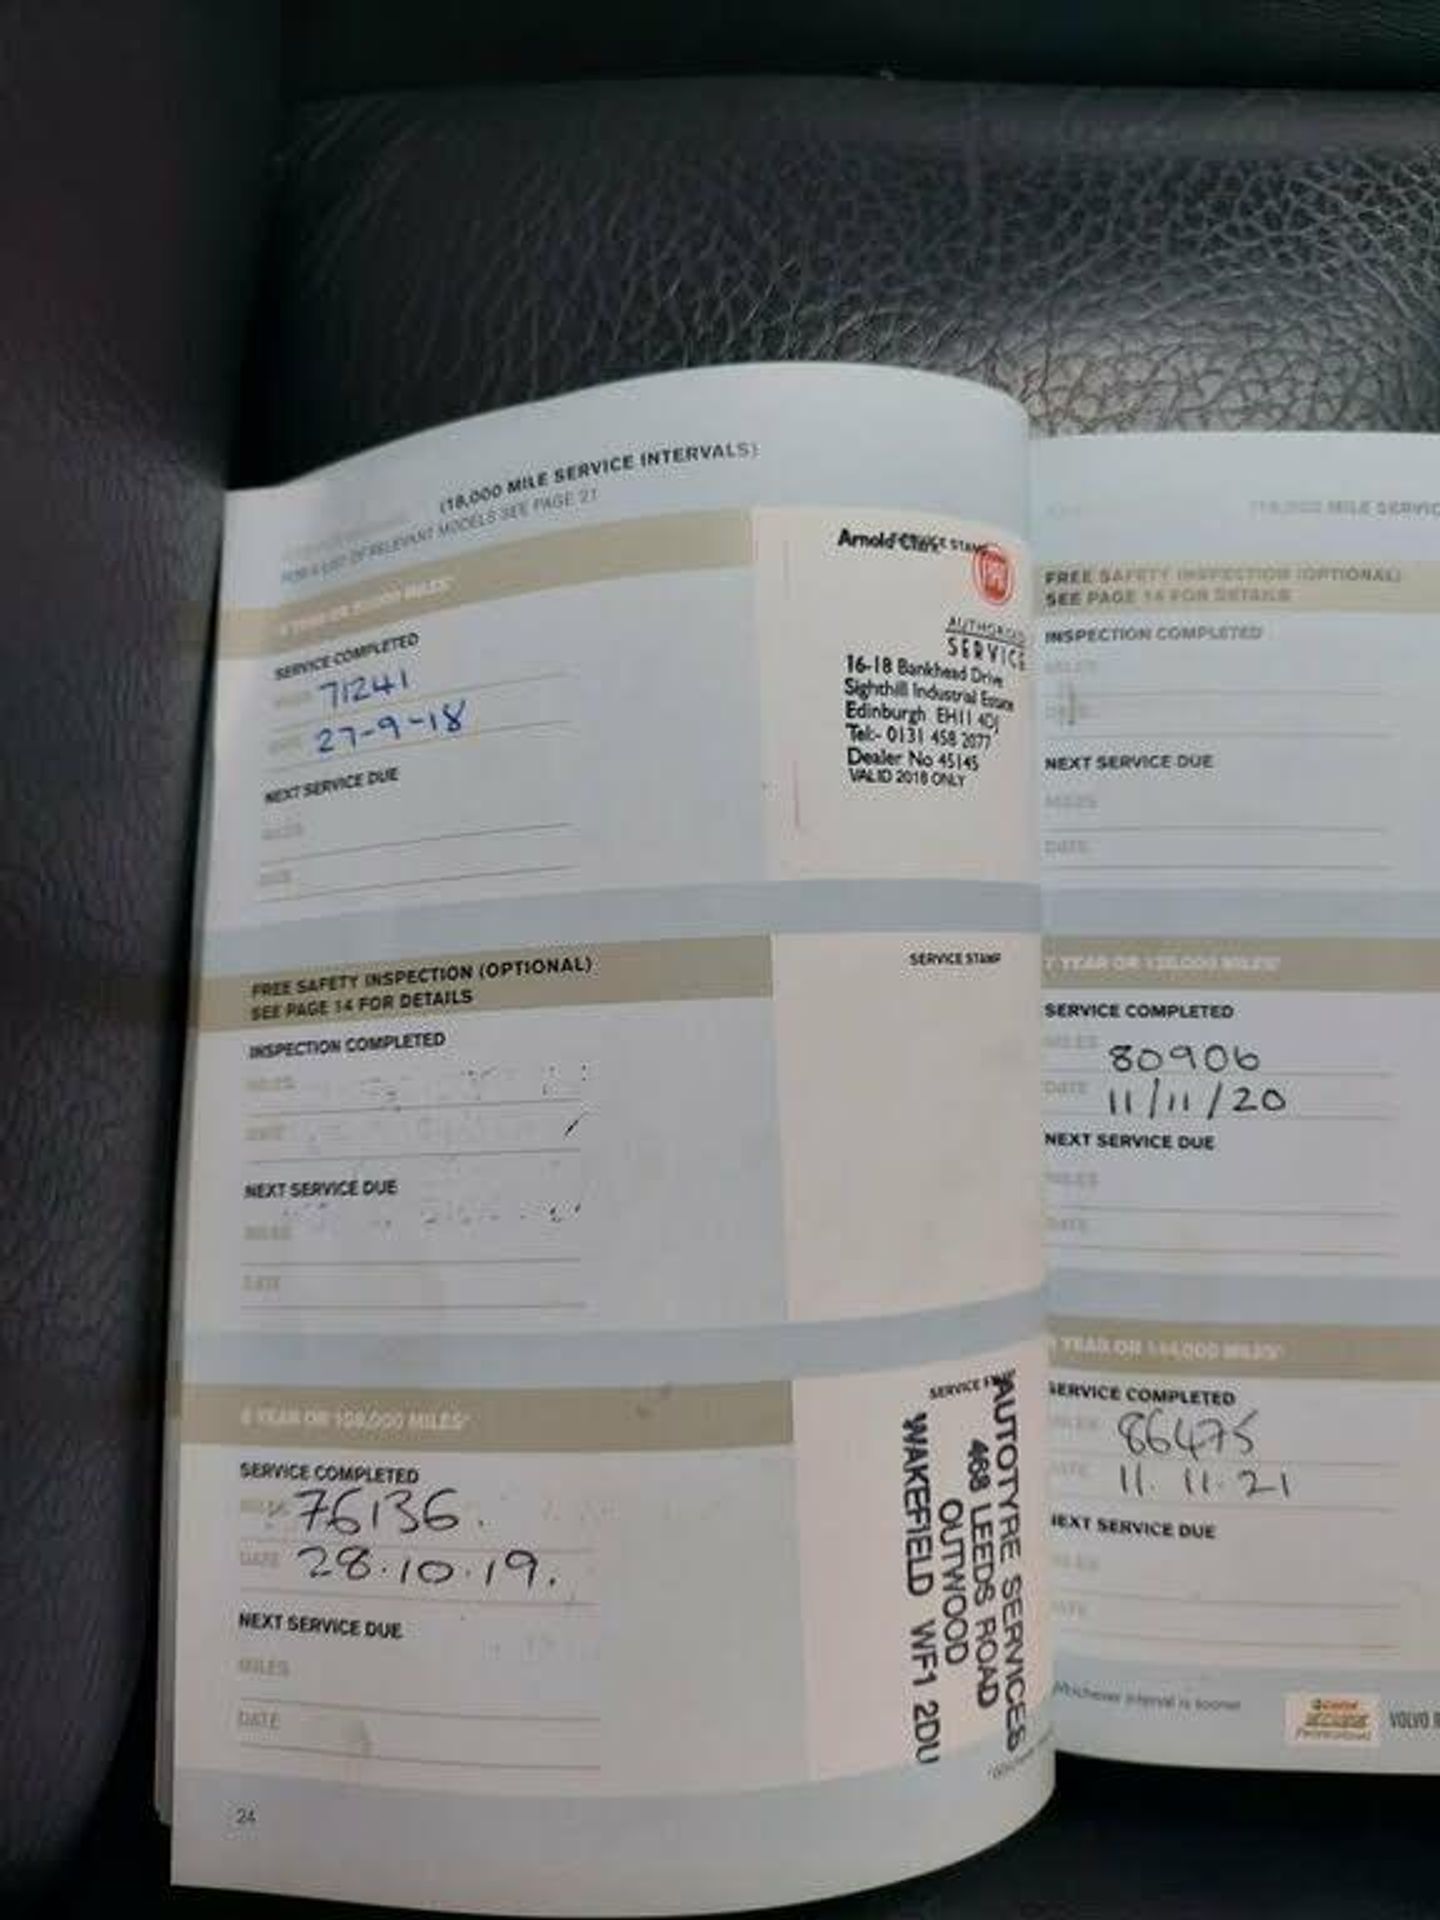 (18,000 MILE SERVICE INTERVALS)
FOR A LIST OF RELEVANT MODELS SEE PAGE 21
SERVICE COMPLETED
71241
DATE 27-9-18
NEXT SERVICE DUE
MILES
DATE
Arnold Clark
SERVICE STAMP
AUTHORISED
SERVICE
16-18 Bankhead Drive
Sighthill Industrial Estate
Edinburgh EH11 4DJ
Tel:- 0131 458 2077
Dealer No 45145
VALID 2018 ONLY
FREE SAFETY INSPECTION (OPTIONAL)
SEE PAGE 14 FOR DETAILS
INSPECTION COMPLETED
MILES
DATE
NEXT SERVICE DUE
MILES
DATE
SERVICE STAMP
6 YEAR OR 108,000 MILES*
SERVICE COMPLETED
MILES 76136.
DATE 28.10.19.
NEXT SERVICE DUE
MILES
DATE
SERVICE
AUTOTYRE SERVICES
468 LEEDS ROAD
OUTWOOD
WAKEFIELD WF1 2DU
24
(18,000 MILE SERVIC
FREE SAFETY INSPECTION (OPTIONAL)
SEE PAGE 14 FOR DETAILS
INSPECTION COMPLETED
MILES
DATE
NEXT SERVICE DUE
MILES
DATE
7 YEAR OR 126,000 MILES*
SERVICE COMPLETED
MILES 80906
DATE 11/11/20
NEXT SERVICE DUE
MILES
DATE
YEAR OR 144,000 MILES*
SERVICE COMPLETED
MILES 86475
DATE 11.11.21
NEXT SERVICE DUE
MILES
DATE
Whichever interval is sooner
Castrol
EDGE
Professional
VOLVO